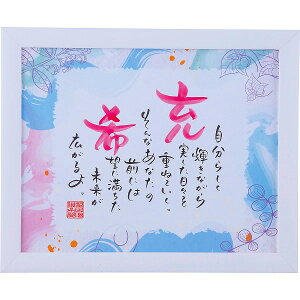 充希
自分らしく
輝きながら
実した日々を
重ねていく。
そんなあなたの
前には
望に満ちた
未来が
広がるよ。